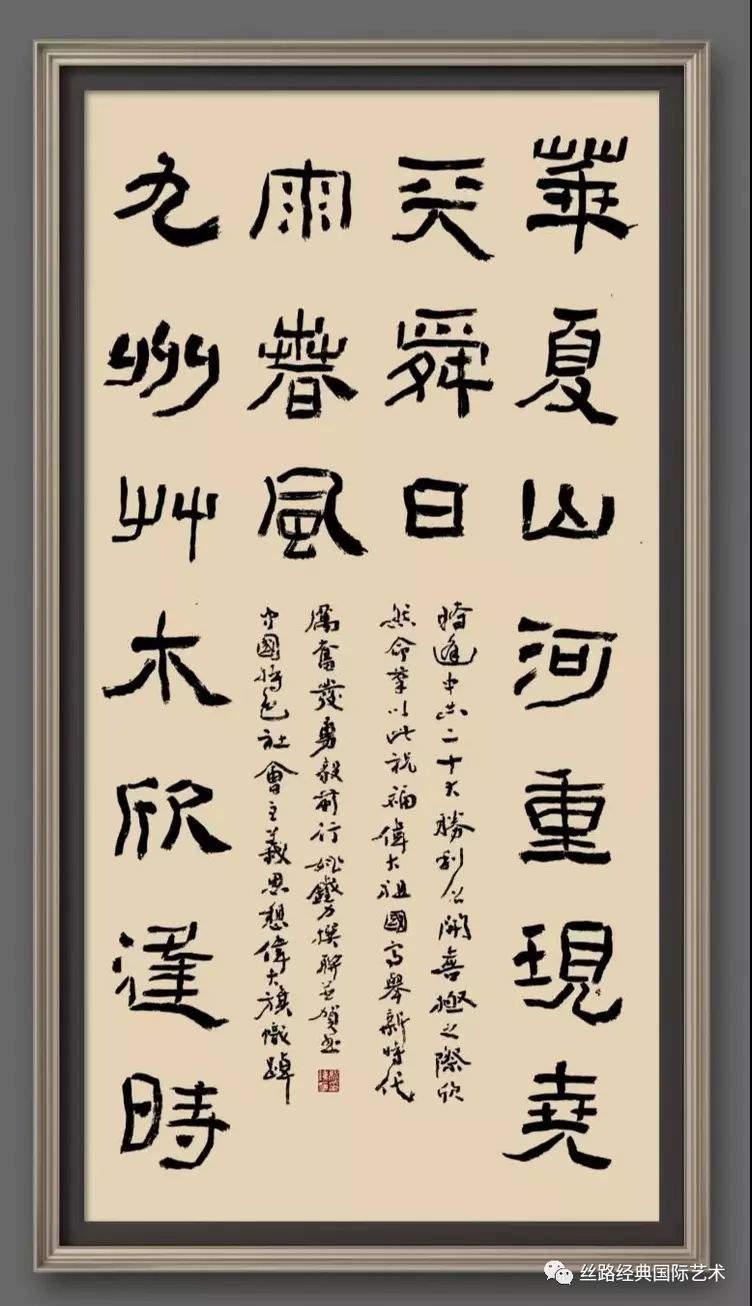 華夏山河重現堯
天舜日
九州艸木欣逢時
雨春風
時逢中共二十大勝利召開喜極之際欣
然命筆以此祝福偉大祖國高舉新時代
中國特色社會主義思想偉大旗幟踔
厲奮發勇毅前行姚撰聯並賀書
丝路经典国际艺术